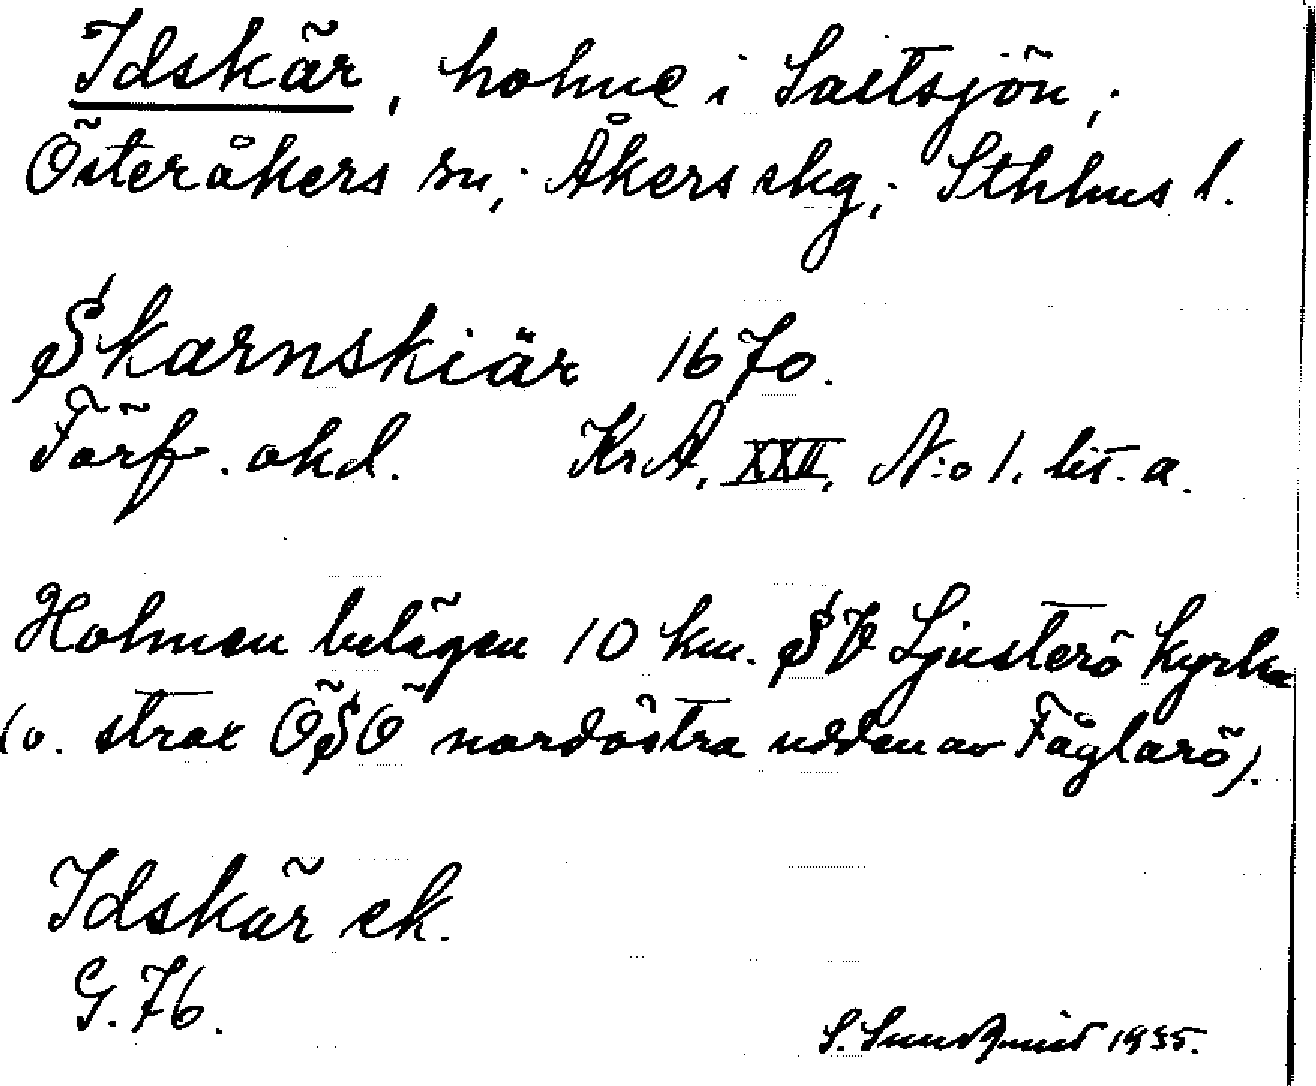 Idskär, holme i Saltsjön;
Österåkers sn; Åkers skg; Sthlms l.
Skarnskiär 1670.
Förf. okd. KrA. XXII, N:o 1. lit. a.
Holmen belägen 10 km. SV Ljusterö kyrka
(o. strax ÖSÖ nordöstra udden av Fåglarö).
Idskär ek.
G. 76.
S. Sundqvist 1935.